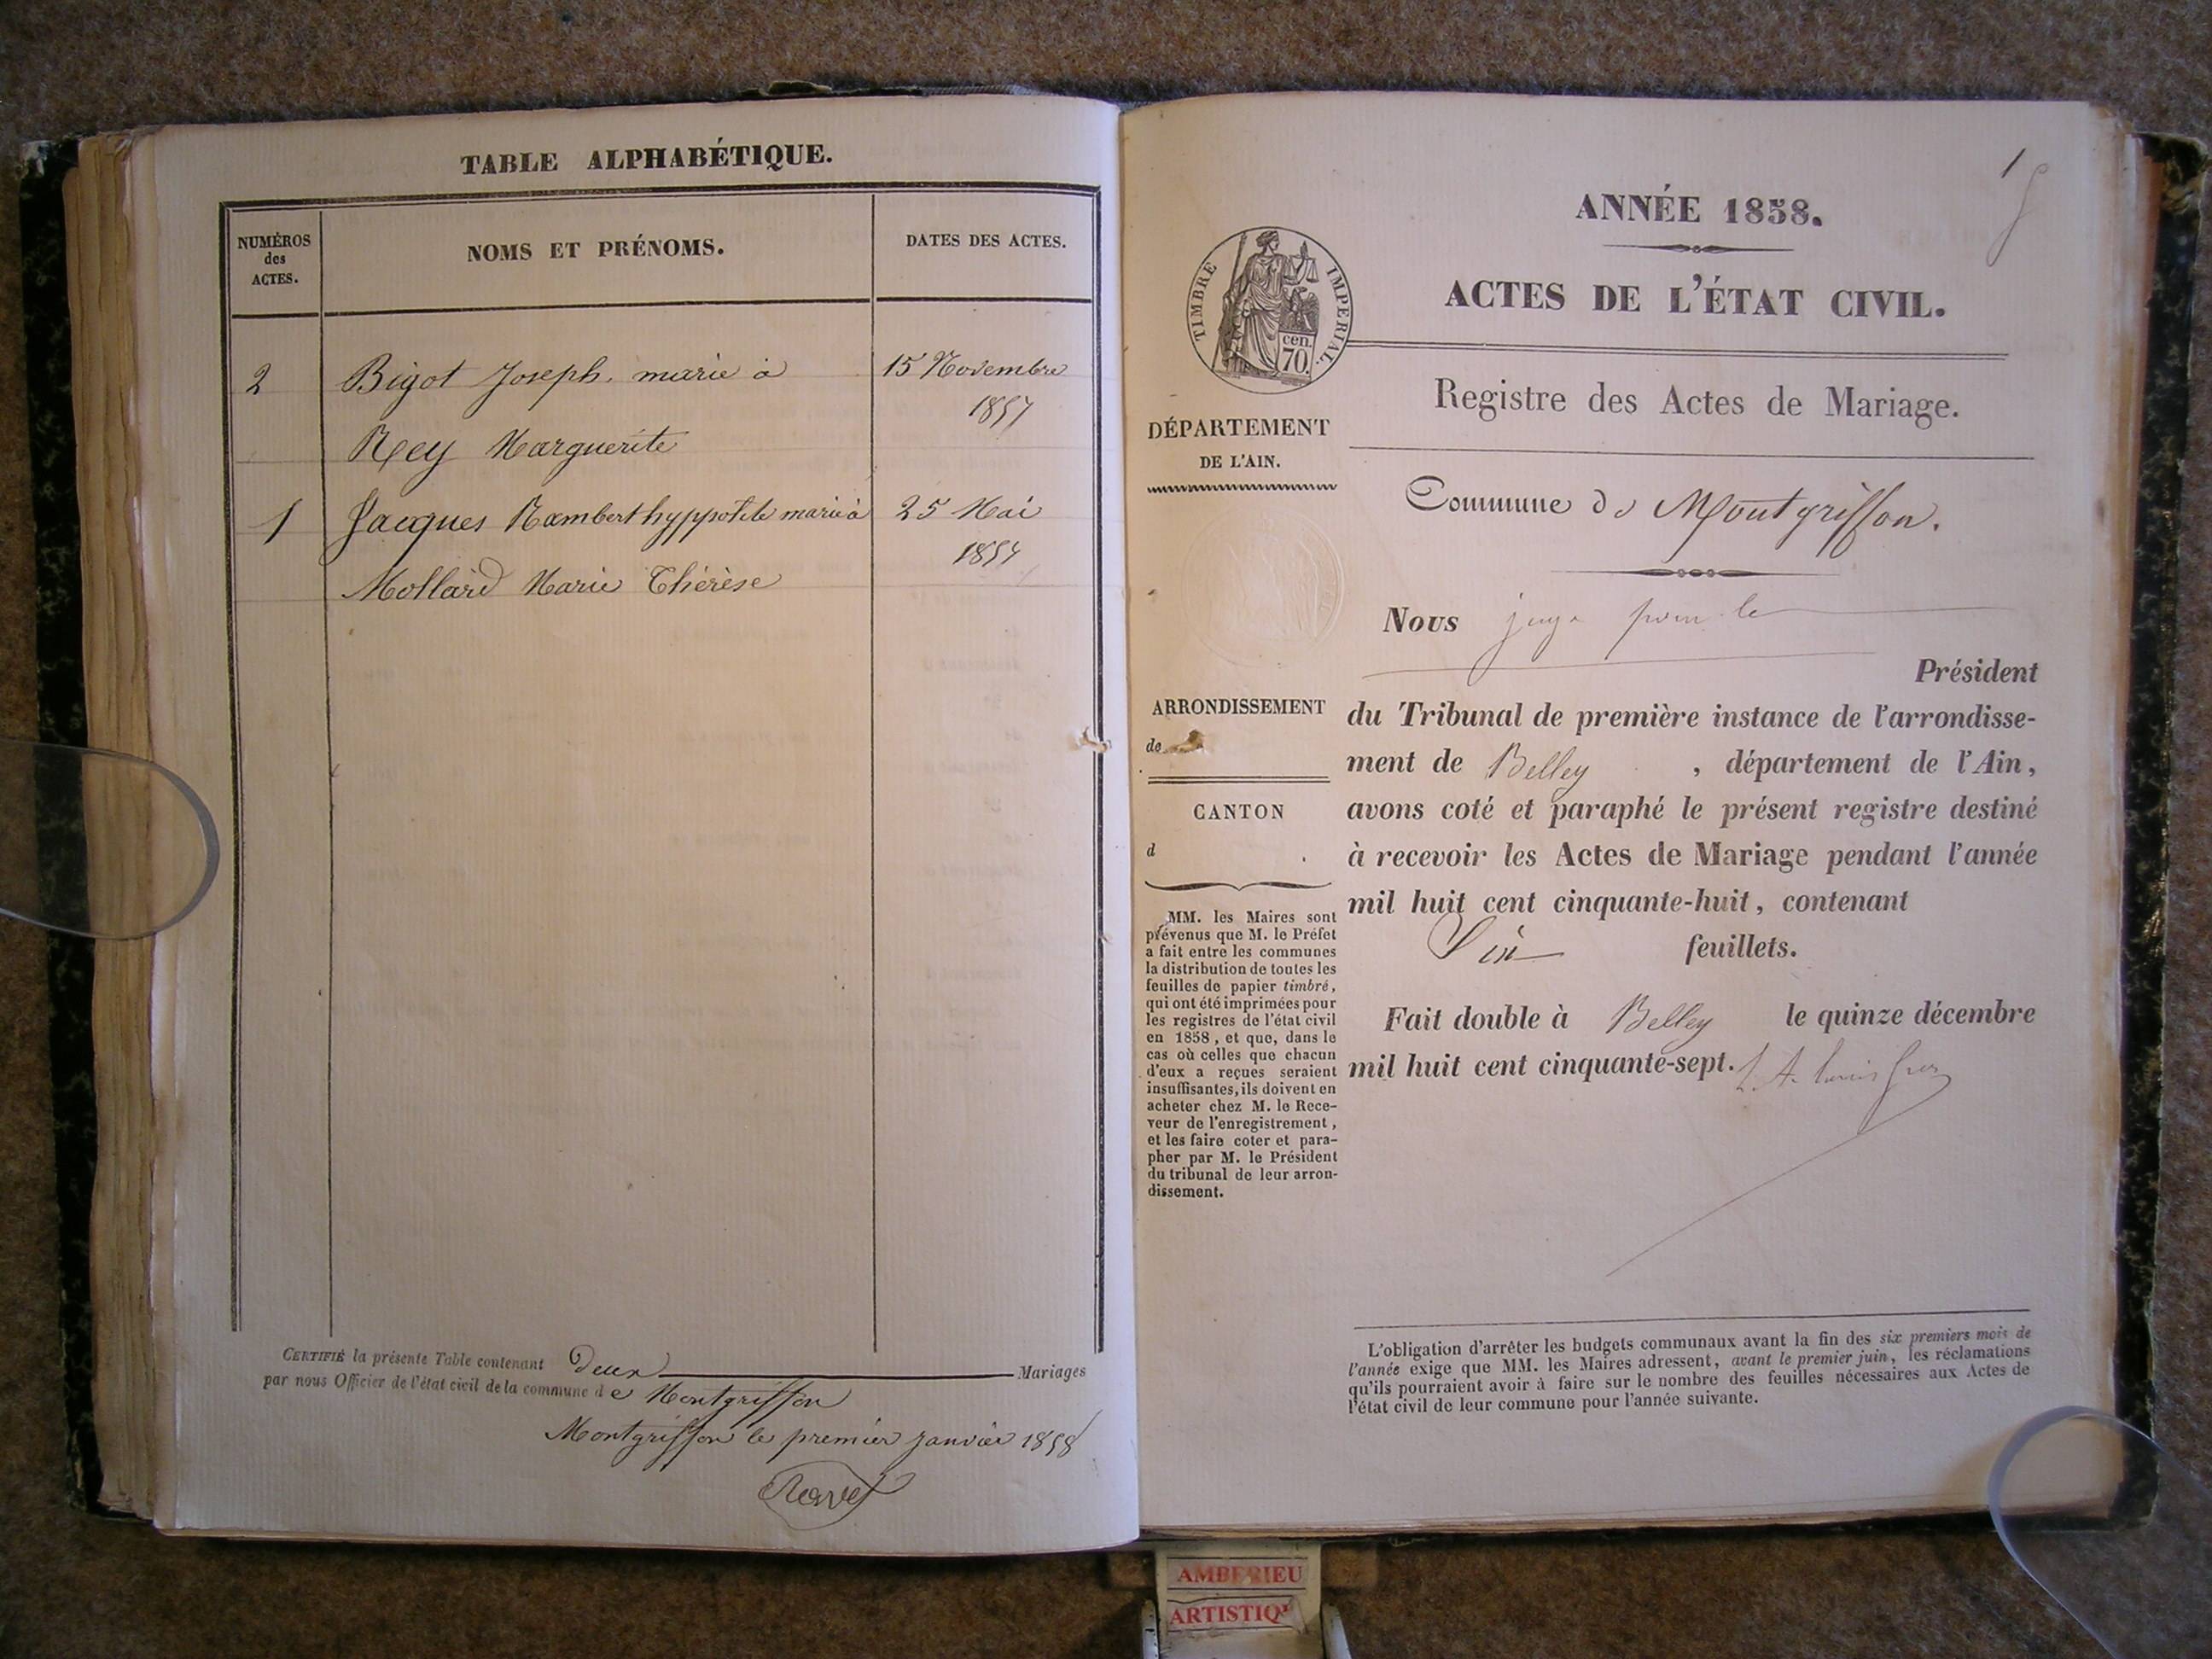 TABLE ALPHABÉTIQUE.
NUMÉROS
des
ACTES.
NOMS ET PRÉNOMS.
DATES DES ACTES.
2 Bigot Joseph, marié à 15 Novembre
1857
Rey Marguerite
1 Jacques Rambert hyppolite marié à 25 Mai
1857
Mollard Marie Thérèse
CERTIFIÉ la présente Table contenant Deux Mariages
par nous Officier de l'état civil de la commune de Montgriffon
Montgriffon le premier janvier 1858
1
ANNÉE 1858.
ACTES DE L'ÉTAT CIVIL.
TIMBRE IMPÉRIAL.
cen.
70.
Registre des Actes de Mariage.
DÉPARTEMENT
DE L'AIN.
Commune de Montgriffon.
Nous juge pour le
Président
ARRONDISSEMENT
de
CANTON
d
du Tribunal de première instance de l'arrondisse-
ment de Belley, département de l'Ain,
avons coté et paraphé le présent registre destiné
à recevoir les Actes de Mariage pendant l'année
mil huit cent cinquante-huit, contenant
feuillets.
Fait double à Belley le quinze décembre
mil huit cent cinquante-sept.
MM. les Maires sont
prévenus que M. le Préfet
a fait entre les communes
la distribution de toutes les
feuilles de papier timbré,
qui ont été imprimées pour
les registres de l'état civil
en 1858, et que, dans le
cas où celles que chacun
d'eux a reçues seraient
insuffisantes, ils doivent en
acheter chez M. le Rece-
veur de l'enregistrement,
et les faire coter et para-
pher par M. le Président
du tribunal de leur arron-
dissement.
L'obligation d'arrêter les budgets communaux avant la fin des six premiers mois de
l'année exige que MM. les Maires adressent, avant le premier juin, les réclamations
qu'ils pourraient avoir à faire sur le nombre des feuilles nécessaires aux Actes de
l'état civil de leur commune pour l'année suivante.
AMBERIEU
ARTISTIQ